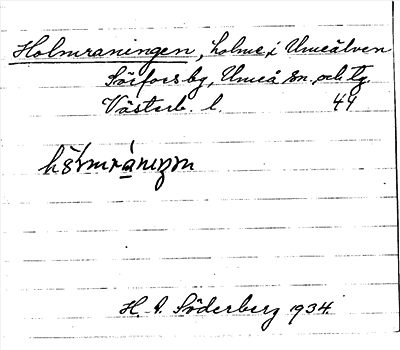 Holmraningen, holme i Umeälven
Sörfors by, Umeå sn. och tg.
Västerb. l. 49
H. A. Söderberg 1934.